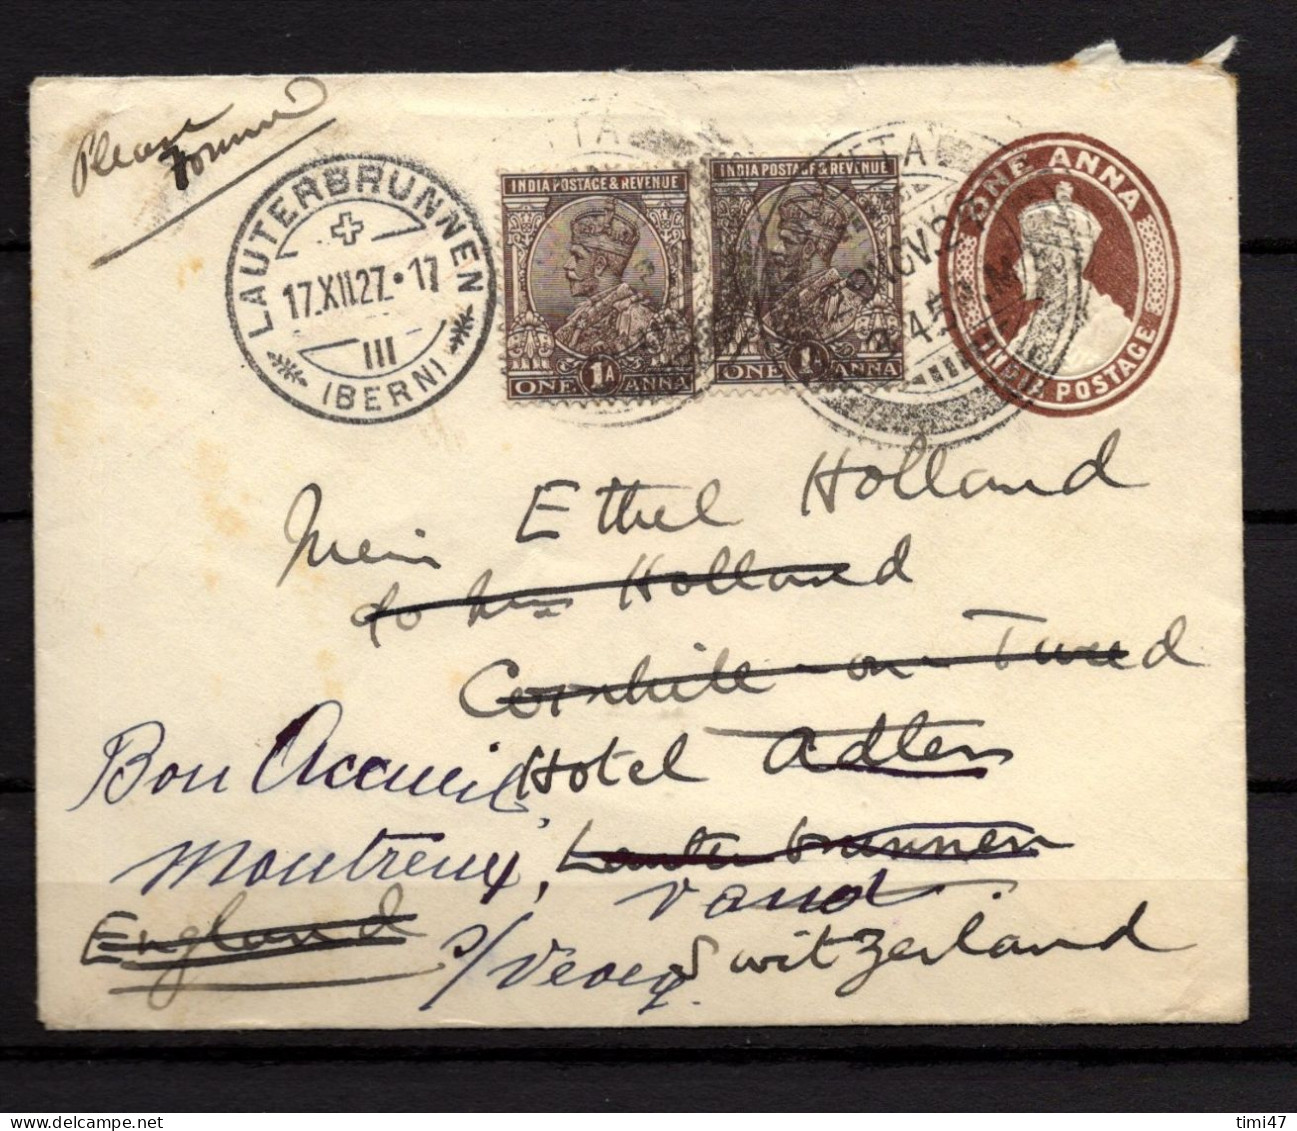 Please
LAUTERBRUNNEN
17.XII.27.17
III
(BERN)
INDIA POSTAGE & REVENUE
1A
ONE ANNA
INDIA POSTAGE & REVENUE
ONE ANNA
ONE ANNA
INDIA POSTAGE
Ethel Holland
Holland
Cornhill-on-Tweed
Hotel Adler
Lauterbrunnen
Bon Accueil
Montreux, Vaud
England
s/Vevey Switzerland
timi47